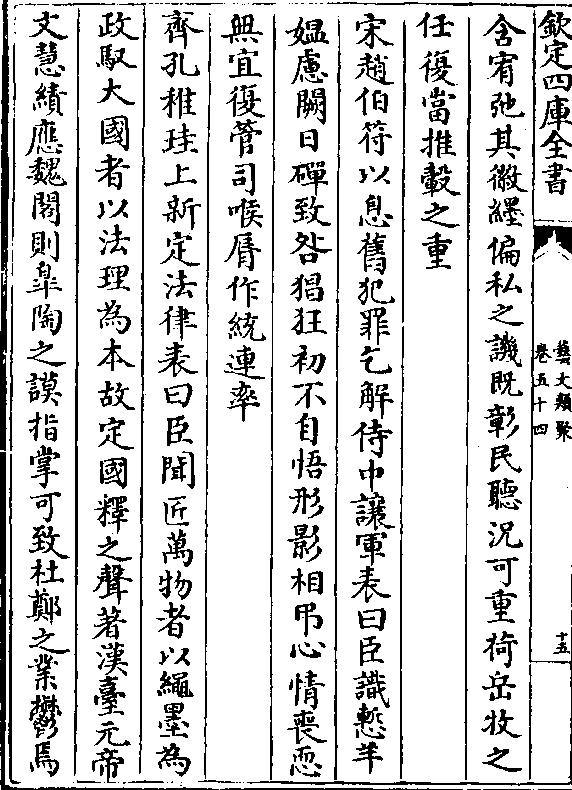 欽定四庫全書
藝文類聚
卷五十四
十五
含宥弛其徽纆偏私之譏既彰民聽況可重荷岳牧之
任復當推轂之重
宋趙伯符以息舊犯罪乞解侍中護軍表曰臣識慙羊
媼慮闕日磾致咎猖狂初不自悟形影相弔心情喪恧
無宜復管司喉脣作統連率
齊孔稚珪上新定法律表曰臣聞匠萬物者以繩墨為
政馭大國者以法理為本故定國釋之聲著漢臺元帝
文慧績應魏閣則臯陶之謨指掌可致杜鄭之業鬱焉